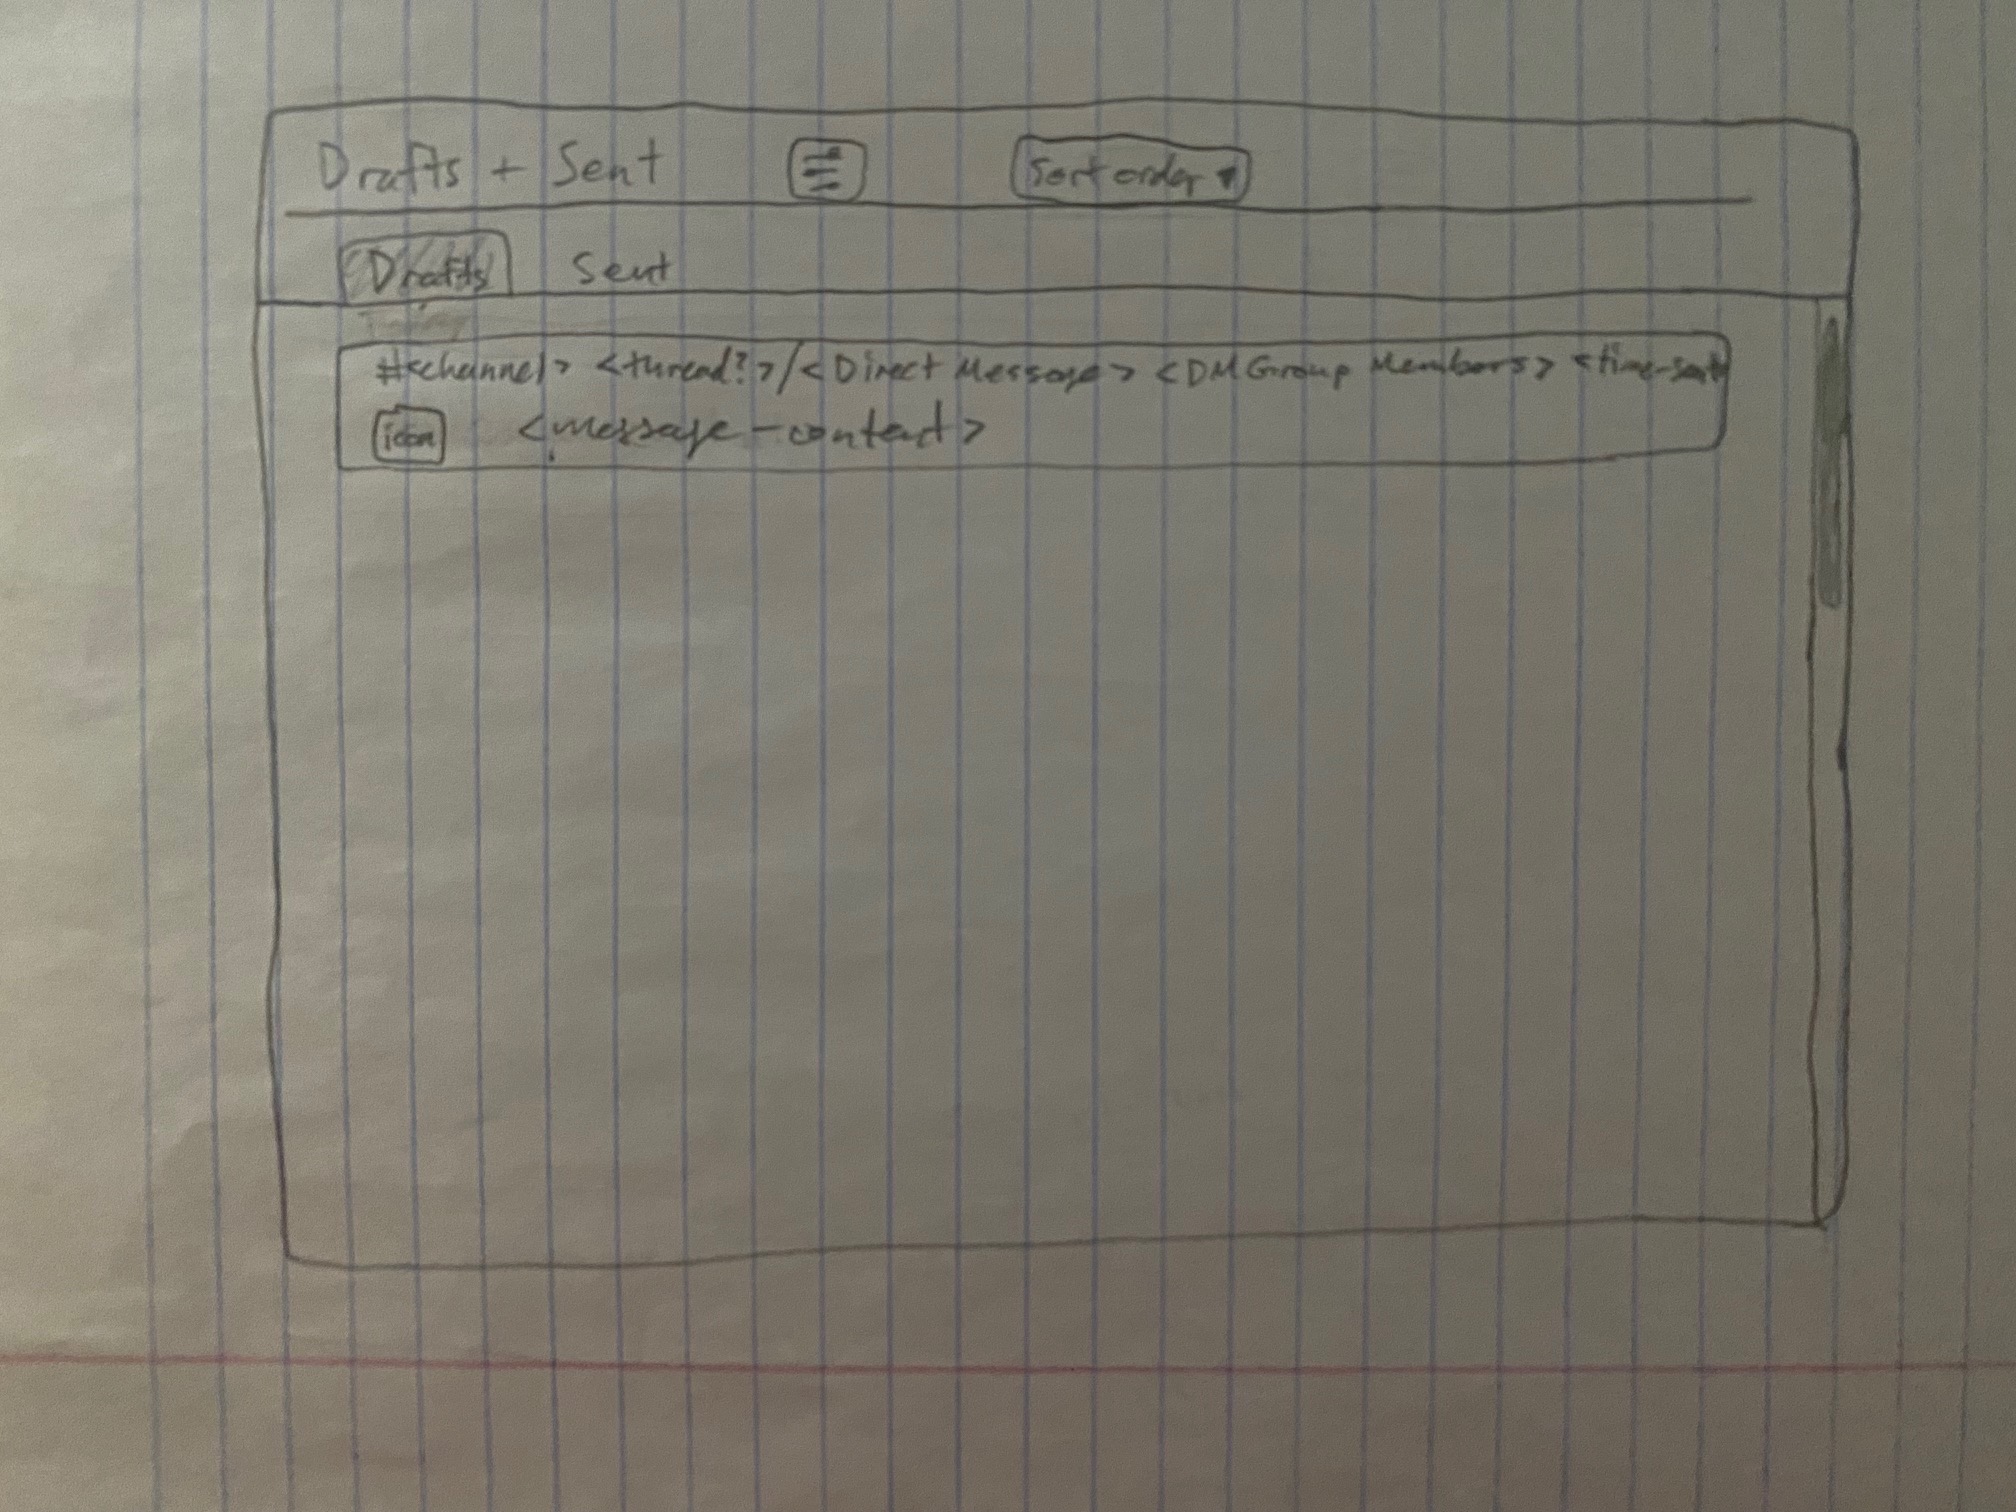 Drafts + Sent Sort order ▾
Drafts Sent
Today
#<channel> <thread?>/<Direct Message> <DM Group Members> <time-sent>
icon <message-content>